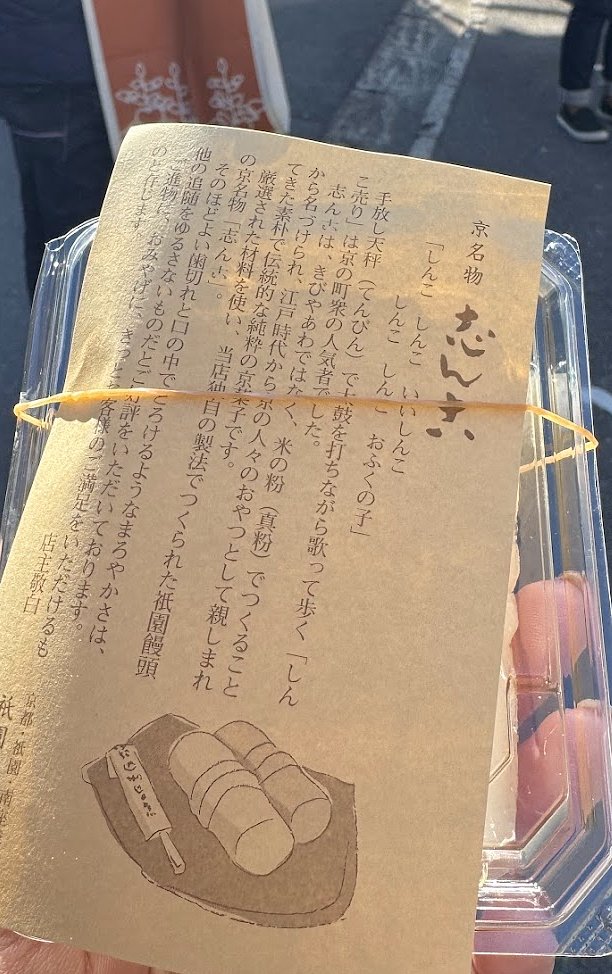 京名物
志ん古
「しんこ　しんこ　いいしんこ
しんこ　しんこ　おふくの子」
手放し天秤（てんびん）で太鼓を打ちながら歌って歩く「しん
こ売り」は京の町衆の人気者でした。
志ん古は、きびやあわではなく、米の粉（真粉）でつくること
から名づけられ、江戸時代から京の人々のおやつとして親しまれ
てきた素朴で伝統的な純粋の京菓子です。
厳選された材料を使い、当店独自の製法でつくられた祇園饅頭
の京名物「志ん古」。
そのほどよい歯切れと口の中でとろけるようなまろやかさは、
他の追随をゆるさないものだとご好評をいただいております。
ご進物に、おみやげに、きっとお客様のご満足をいただけるも
のと存じます。
店主敬白
京都・祇園・南座
祇園